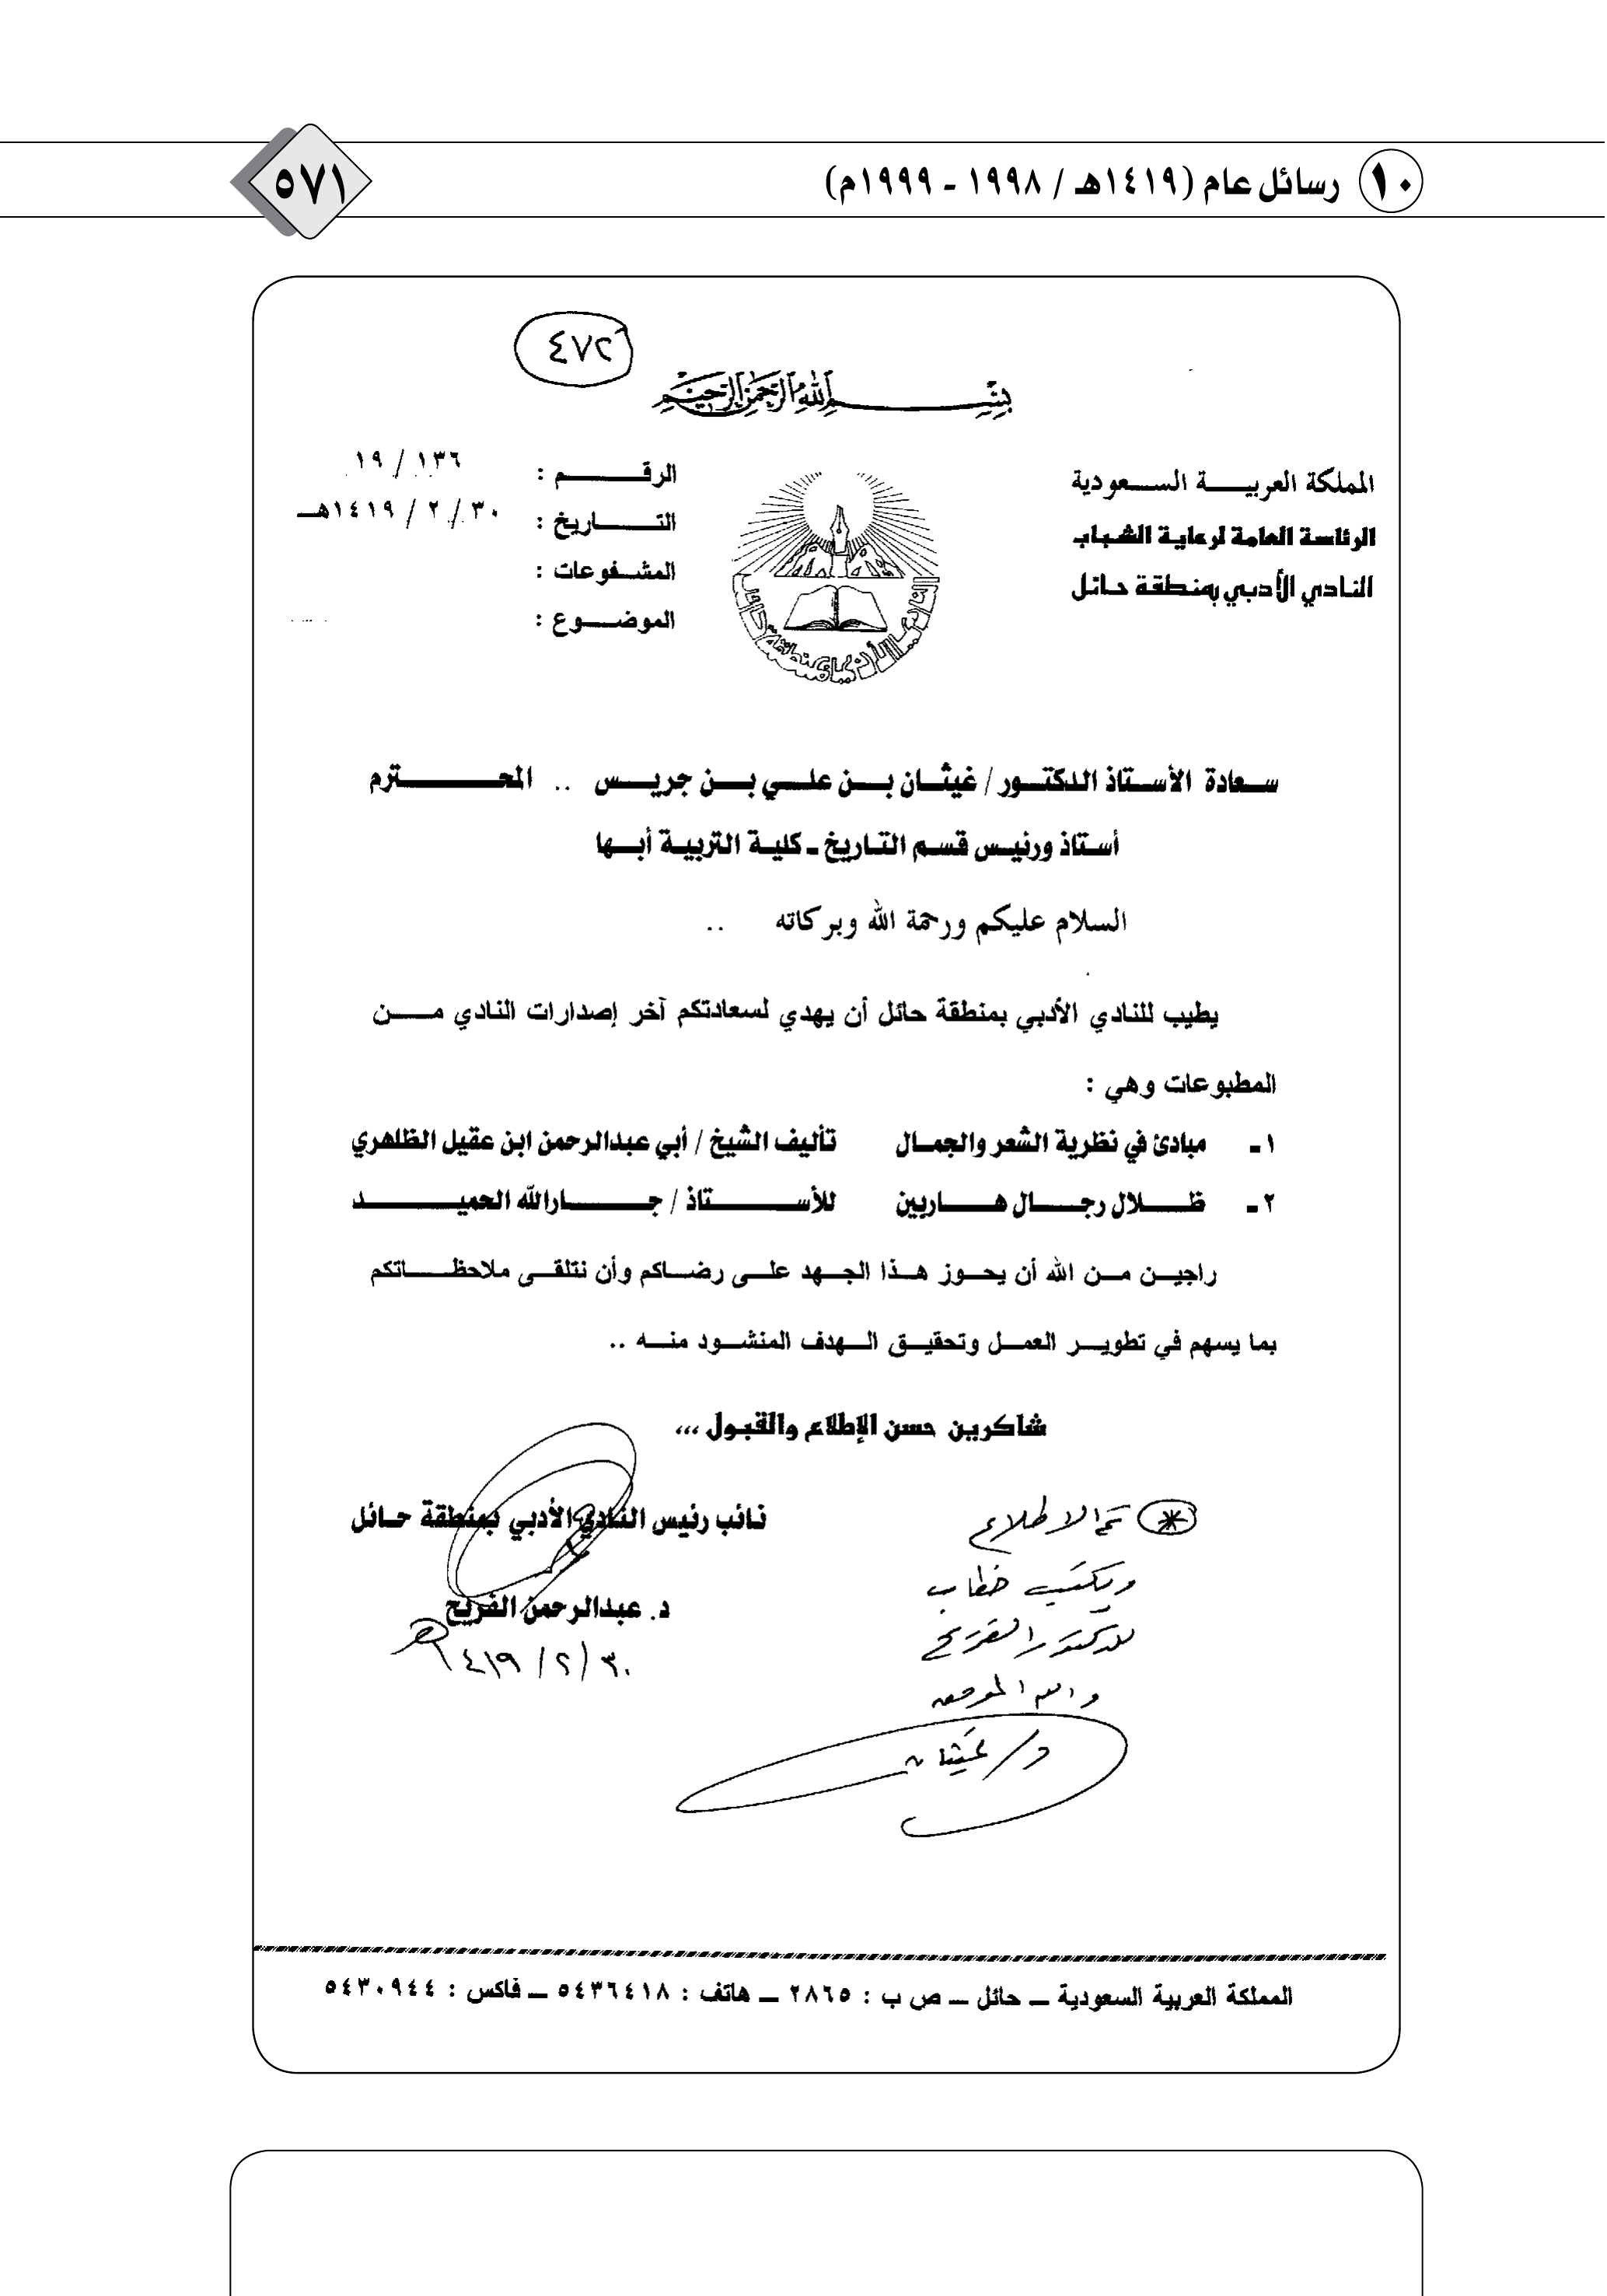 ١٠ رسائل عام (١٤١٩هـ / ١٩٩٨ - ١٩٩٩م)
٥٧١
٤٧٢
بسم الله الرحمن الرحيم
المملكة العربية السعودية
الرئاسة العامة لرعاية الشباب
النادي الأدبي بمنطقة حائل
النادي الأدبي بمنطقة حائل
الرقم : ١٣٦ / ١٩
التاريخ : ٣٠ / ٢ / ١٤١٩هـ
المشفوعات :
الموضوع :
سعادة الأستاذ الدكتور / غيثان بن علي بن جريس .. المحترم
أستاذ ورئيس قسم التاريخ - كلية التربية أبها
السلام عليكم ورحمة الله وبركاته ..
يطيب للنادي الأدبي بمنطقة حائل أن يهدي لسعادتكم آخر إصدارات النادي من
المطبوعات وهي :
١- مبادئ في نظرية الشعر والجمال تأليف الشيخ / أبي عبدالرحمن ابن عقيل الظاهري
٢- ظلال رجال هاربين للأستاذ / جارالله الحميد
راجين من الله أن يحوز هذا الجهد على رضاكم وأن نتلقى ملاحظاتكم
بما يسهم في تطوير العمل وتحقيق الهدف المنشود منه ..
شاكرين حسن الإطلاع والقبول ,,,
نائب رئيس النادي الأدبي بمنطقة حائل
د. عبدالرحمن الفريح
٣٠ / ٢ / ١٤١٩هـ
تم الاطلاع
ويكتب خطاب
للدكتور الفريح
والله الموفق
د / غيثان
المملكة العربية السعودية – حائل – ص ب : ٢٨٦٥ – هاتف : ٥٤٣٦٤١٨ – فاكس : ٥٤٣٠٩٤٤